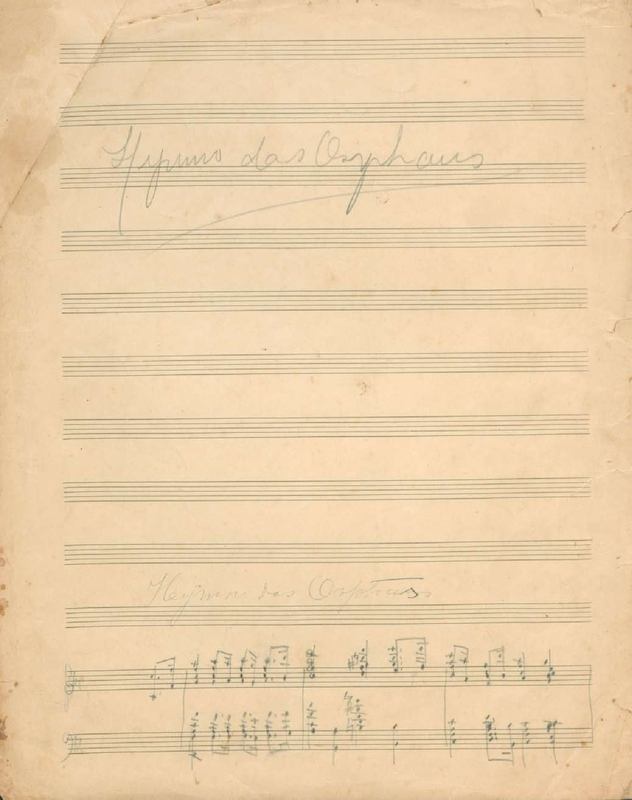 Hymno das Orphans
Hymno das Orphans